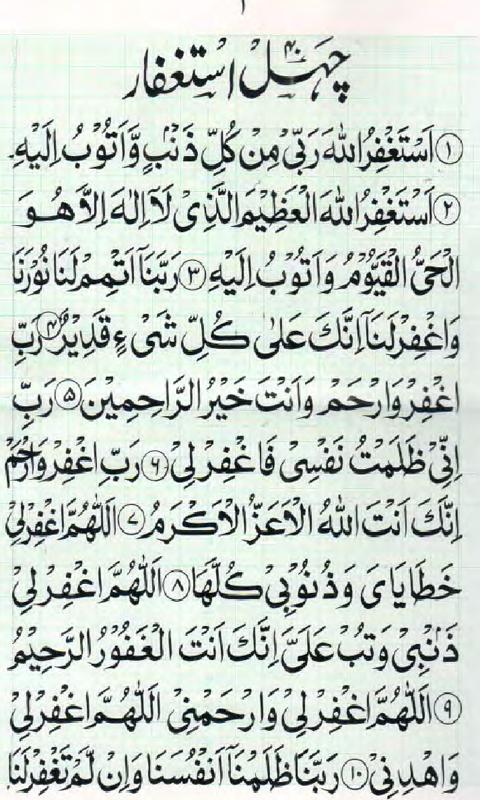 ۱
چہل استغفار
۴۰
① اَسْتَغْفِرُ اللهَ رَبِّیْ مِنْ كُلِّ ذَنْۢبٍ وَّاَتُوْبُ اِلَیْهِ
② اَسْتَغْفِرُ اللهَ الْعَظِیْمَ الَّذِیْ لَاۤ اِلٰهَ اِلَّا هُوَ
الْحَیُّ الْقَیُّوْمُ وَاَتُوْبُ اِلَیْهِ ③ رَبَّنَاۤ اَتْمِمْ لَنَا نُوْرَنَا
وَاغْفِرْ لَنَاۤ اِنَّكَ عَلٰی كُلِّ شَیْءٍ قَدِیْرٌ ④ رَبِّ
اغْفِرْ وَارْحَمْ وَاَنْتَ خَیْرُ الرَّاحِمِیْنَ ⑤ رَبِّ
اِنِّیْ ظَلَمْتُ نَفْسِیْ فَاغْفِرْ لِیْ ⑥ رَبِّ اغْفِرْ وَارْحَمْ
اِنَّكَ اَنْتَ اللهُ الْاَعَزُّ الْاَكْرَمُ ⑦ اَللّٰهُمَّ اغْفِرْ لِیْ
خَطَایَایَ وَذُنُوْبِیْ كُلَّهَا ⑧ اَللّٰهُمَّ اغْفِرْ لِیْ
ذَنْۢبِیْ وَتُبْ عَلَیَّ اِنَّكَ اَنْتَ الْغَفُوْرُ الرَّحِیْمُ
⑨ اَللّٰهُمَّ اغْفِرْ لِیْ وَارْحَمْنِیْ اَللّٰهُمَّ اغْفِرْ لِیْ
وَاهْدِنِیْ ⑩ رَبَّنَا ظَلَمْنَاۤ اَنْفُسَنَا وَاِنْ لَّمْ تَغْفِرْ لَنَا